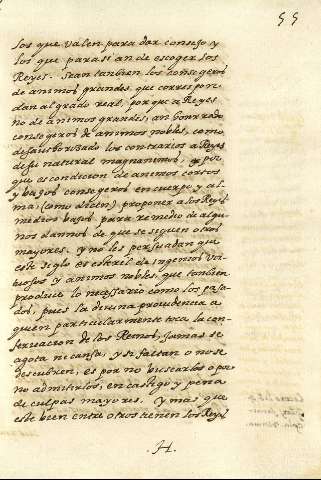 55
los que valen para dar consejo, y
los que para si an de escoger los
Reyes. Sean tanbien los consegeros
de animos grandes, que correspon-
dan al grado real, porque a Reyes
no de animos grandes, an honrrado
consegeros de animos nobles, como
desautorisado los contrarios a Reyes
de su natural magnanimos, y por
que es condicion de animos cortos
y baxos consegeros en cuerpo y al-
ma, (como dicen) proponer a los Reyes
medios baxos para remedio de algu-
nos dannos de que se siguen otros
mayores. y no les persuadan que
este siglo es esteril de ingenios va-
liosos y animos nobles, que tanbien
produce lo necessario como los pasa-
dos, pues la divina providencia a
quien particularmente toca la con-
servacion de los Reinos, jamas se
agota ni cansa, y si faltan o no se
descubren, es por no buscarlos o por
no admitirlos, en castigo y pena
de culpas mayores. Y mas que
este bien entre otros tienen los Reyes
.H.